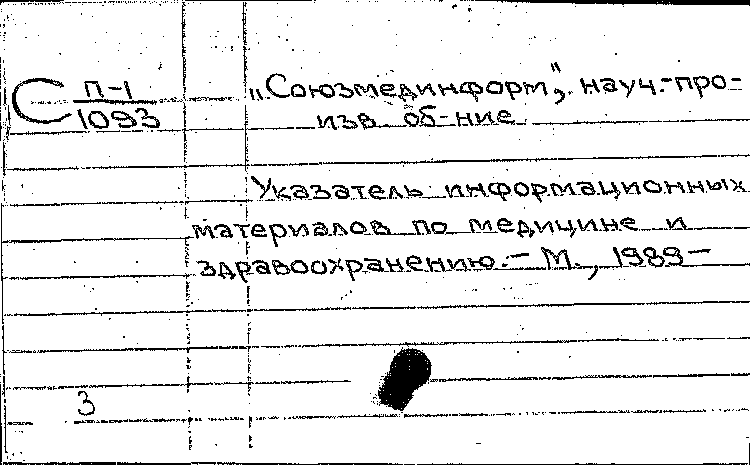 С П-1
1093
„Союзмединформ“, науч.-про-
изв об-ние
Указатель информационных
материалов по медицине и
здравоохранению.- М., 1989-
3